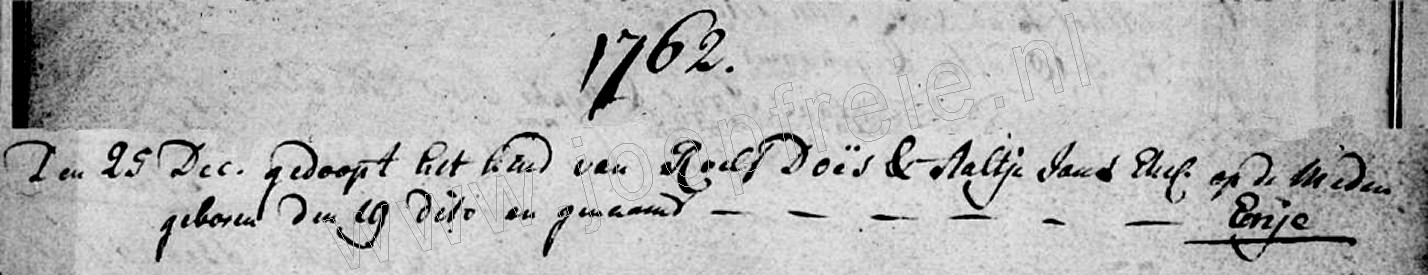 1762.
Den 25 Dec. gedoopt het kind van Roelf Doës & Aaltje Jans Ehel. op de Meden
geboren den 19 dito en genaamd — — — — — — Enje
www.joopfreie.nl